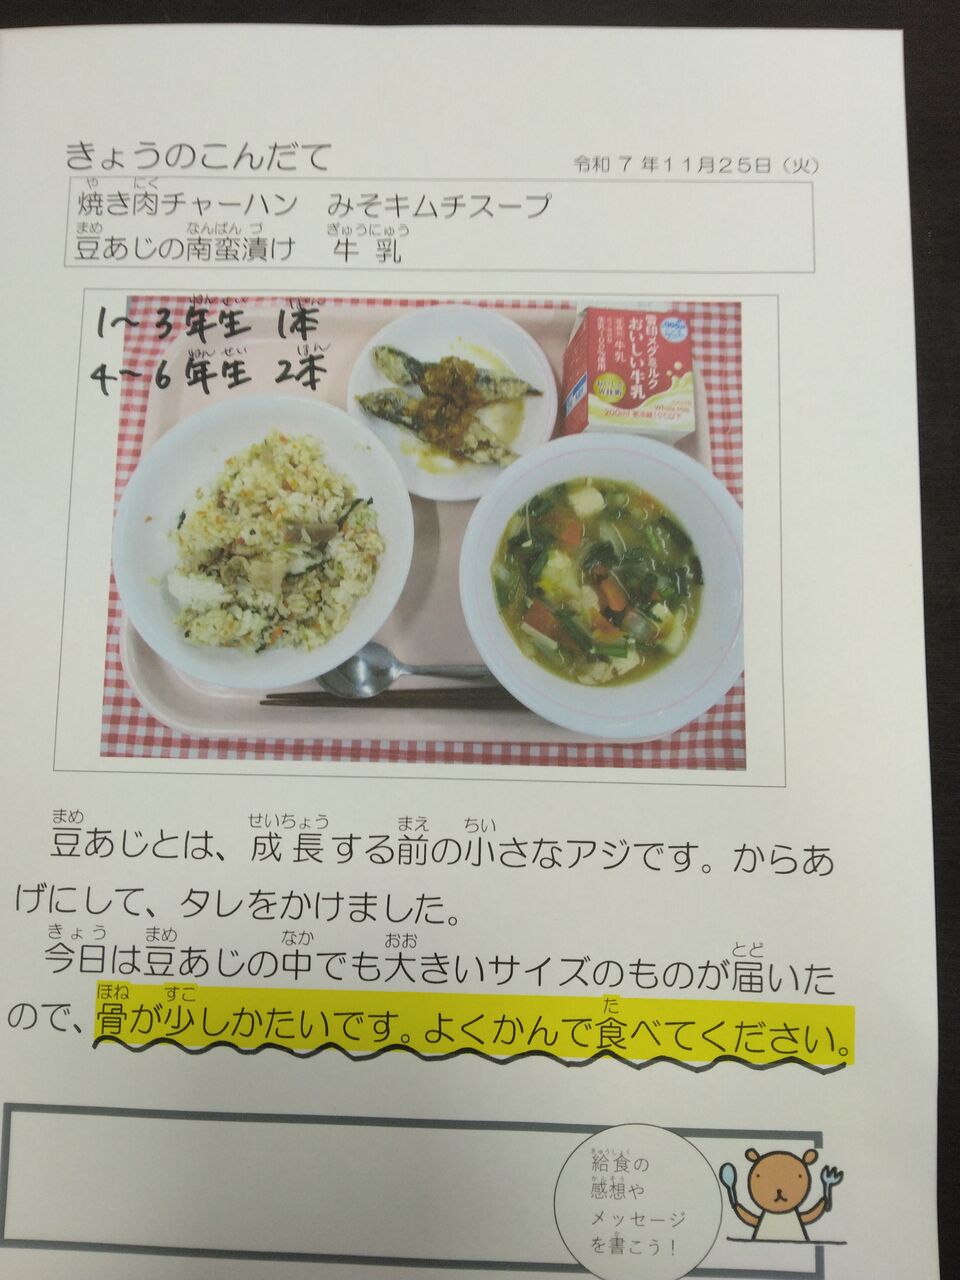 きょうのこんだて
令和7年11月25日（火）
焼き肉チャーハン　みそキムチスープ
豆あじの南蛮漬け　牛乳
1～3年生 1本
4～6年生 2本
雪印メグミルク
おいしい牛乳
200ml 要冷蔵10℃以下
豆あじとは、成長する前の小さなアジです。からあ
げにして、タレをかけました。
今日は豆あじの中でも大きいサイズのものが届いた
ので、骨が少しかたいです。よくかんで食べてください。
給食の
感想や
メッセージ
を書こう！